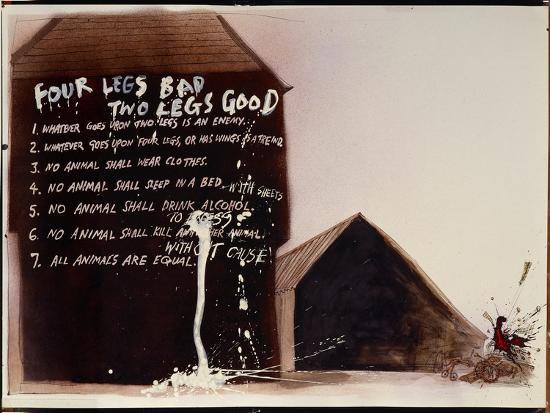 FOUR LEGS BAD
TWO LEGS GOOD
1. WHATEVER GOES UPON TWO LEGS IS AN ENEMY.
2. WHATEVER GOES UPON FOUR LEGS, OR HAS WINGS, IS A FRIEND.
3. NO ANIMAL SHALL WEAR CLOTHES.
4. NO ANIMAL SHALL SLEEP IN A BED. WITH SHEETS
5. NO ANIMAL SHALL DRINK ALCOHOL.
TO EXCESS
6. NO ANIMAL SHALL KILL ANOTHER ANIMAL.
WITHOUT CAUSE!
7. ALL ANIMALS ARE EQUAL.